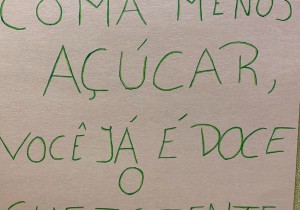 COMA MENOS
AÇÚCAR,
VOCÊ JÁ É DOCE
O
SUFICIENTE